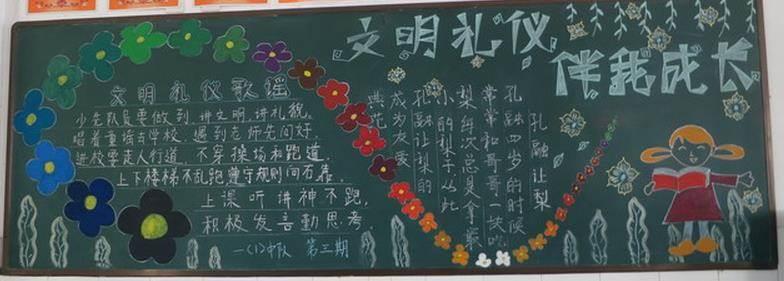 文明礼仪
伴我成长
文明礼仪歌谣
少先队员要做到讲文明,讲礼貌。
唱着童谣去学校,遇到老师先问好,
进校要走人行道,不穿操场和跑道
上下楼梯不乱跑遵守规则向右靠,
上课听讲神不跑,
积极发言勤思考.
一(1)中队 第三期
孔融让梨
孔融四岁的时候
常常和哥哥一块吃
梨每次总是拿最
小的梨子从此
孔融让梨的
成为友爱
典范